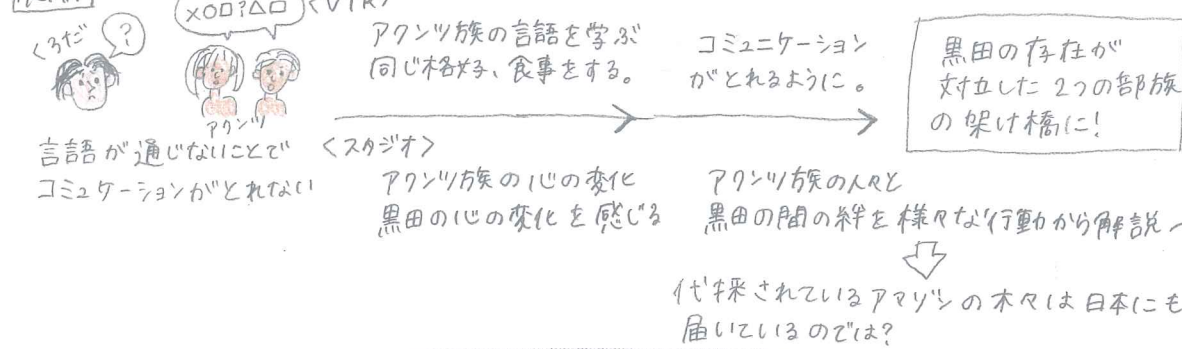 くろだ
?
×○□?△□
<VTR>
アクンツ
言語が通じないことで
コミュケーションがとれない
アクンツ族の言語を学ぶ
同じ格好、食事をする。
コミュニケーション
がとれるように。
黒田の存在が
対立した2つの部族
の架け橋に!
<スタジオ>
アクンツ族の心の変化
黒田の心の変化を感じる
アクンツ族の人々と
黒田の間の絆を様々な行動から解説
伐採されているアマゾンの木々は日本にも
届いているのでは?